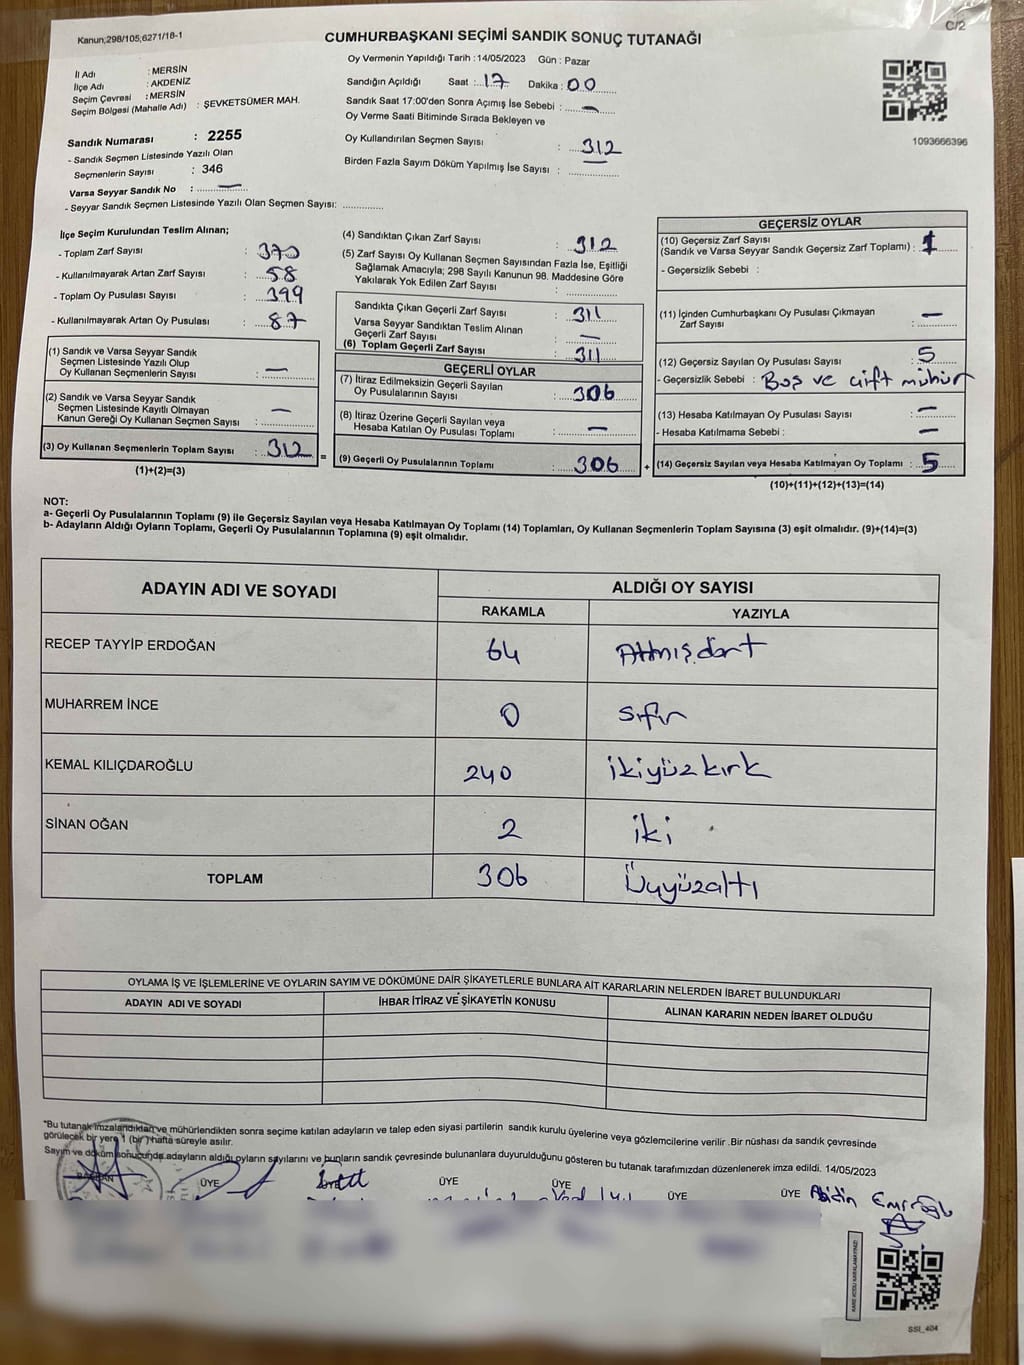 Kanun;298/105;6271/18-1
C/2
CUMHURBAŞKANI SEÇİMİ SANDIK SONUÇ TUTANAĞI
İl Adı : MERSİN
İlçe Adı : AKDENİZ
Seçim Çevresi : MERSİN
Seçim Bölgesi (Mahalle Adı) : ŞEVKETSÜMER MAH.
Sandık Numarası : 2255
- Sandık Seçmen Listesinde Yazılı Olan
Seçmenlerin Sayısı : 346
Varsa Seyyar Sandık No : —
- Seyyar Sandık Seçmen Listesinde Yazılı Olan Seçmen Sayısı: ..............
Oy Vermenin Yapıldığı Tarih : 14/05/2023 Gün : Pazar
Sandığın Açıldığı Saat : 17 Dakika : 00
Sandık Saat 17:00'den Sonra Açımış İse Sebebi : —
Oy Verme Saati Bitiminde Sırada Bekleyen ve
Oy Kullandırılan Seçmen Sayısı : 312
Birden Fazla Sayım Döküm Yapılmış İse Sayısı : —
1093666396
İlçe Seçim Kurulundan Teslim Alınan;
- Toplam Zarf Sayısı : 370
- Kullanılmayarak Artan Zarf Sayısı : 58
- Toplam Oy Pusulası Sayısı : 399
- Kullanılmayarak Artan Oy Pusulası : 87
(1) Sandık ve Varsa Seyyar Sandık
Seçmen Listesinde Yazılı Olup
Oy Kullanan Seçmenlerin Sayısı : —
(2) Sandık ve Varsa Seyyar Sandık
Seçmen Listesinde Kayıtlı Olmayan
Kanun Gereği Oy Kullanan Seçmen Sayısı : —
(3) Oy Kullanan Seçmenlerin Toplam Sayısı : 312 =
(1)+(2)=(3)
(4) Sandıktan Çıkan Zarf Sayısı : 312
(5) Zarf Sayısı Oy Kullanan Seçmen Sayısından Fazla İse, Eşitliği
Sağlamak Amacıyla; 298 Sayılı Kanunun 98. Maddesine Göre
Yakılarak Yok Edilen Zarf Sayısı : ..............
Sandıkta Çıkan Geçerli Zarf Sayısı : 311
Varsa Seyyar Sandıktan Teslim Alınan
Geçerli Zarf Sayısı : —
(6) Toplam Geçerli Zarf Sayısı : 311
GEÇERLİ OYLAR
(7) İtiraz Edilmeksizin Geçerli Sayılan
Oy Pusulalarının Sayısı : 306
(8) İtiraz Üzerine Geçerli Sayılan veya
Hesaba Katılan Oy Pusulası Toplamı : —
(9) Geçerli Oy Pusulalarının Toplamı : 306 +
GEÇERSİZ OYLAR
(10) Geçersiz Zarf Sayısı
(Sandık ve Varsa Seyyar Sandık Geçersiz Zarf Toplamı) : 1
- Geçersizlik Sebebi :
(11) İçinden Cumhurbaşkanı Oy Pusulası Çıkmayan
Zarf Sayısı : —
(12) Geçersiz Sayılan Oy Pusulası Sayısı : 5
- Geçersizlik Sebebi : Boş ve çift mühür
(13) Hesaba Katılmayan Oy Pusulası Sayısı : —
- Hesaba Katılmama Sebebi : —
(14) Geçersiz Sayılan veya Hesaba Katılmayan Oy Toplamı : 5
(10)+(11)+(12)+(13)=(14)
NOT:
a- Geçerli Oy Pusulalarının Toplamı (9) ile Geçersiz Sayılan veya Hesaba Katılmayan Oy Toplamı (14) Toplamları, Oy Kullanan Seçmenlerin Toplam Sayısına (3) eşit olmalıdır. (9)+(14)=(3)
b- Adayların Aldığı Oyların Toplamı, Geçerli Oy Pusulalarının Toplamına (9) eşit olmalıdır.
ADAYIN ADI VE SOYADI ALDIĞI OY SAYISI
RAKAMLA YAZIYLA
RECEP TAYYİP ERDOĞAN 64 Altmışdört
MUHARREM İNCE 0 sıfır
KEMAL KILIÇDAROĞLU 240 ikiyüzkırk
SİNAN OĞAN 2 iki
TOPLAM 306 Üçyüzaltı
OYLAMA İŞ VE İŞLEMLERİNE VE OYLARIN SAYIM VE DÖKÜMÜNE DAİR ŞİKAYETLERLE BUNLARA AİT KARARLARIN NELERDEN İBARET BULUNDUKLARI
ADAYIN ADI VE SOYADI İHBAR İTİRAZ VE ŞİKAYETİN KONUSU ALINAN KARARIN NEDEN İBARET OLDUĞU
"Bu tutanak imzalandıktan ve mühürlendikten sonra seçime katılan adayların ve talep eden siyasi partilerin sandık kurulu üyelerine veya gözlemcilerine verilir .Bir nüshası da sandık çevresinde
görülecek bir yere 1 (bir ) hafta süreyle asılır.
Sayım ve döküm sonucunda adayların aldığı oyların sayılarını ve bunların sandık çevresinde bulunanlara duyurulduğunu gösteren bu tutanak tarafımızdan düzenlenerek imza edildi. 14/05/2023
BAŞKAN ÜYE ÜYE ÜYE ÜYE ÜYE Abidin Emiroğlu
KARE KODU KARALAMAYINIZ!
SSI_404